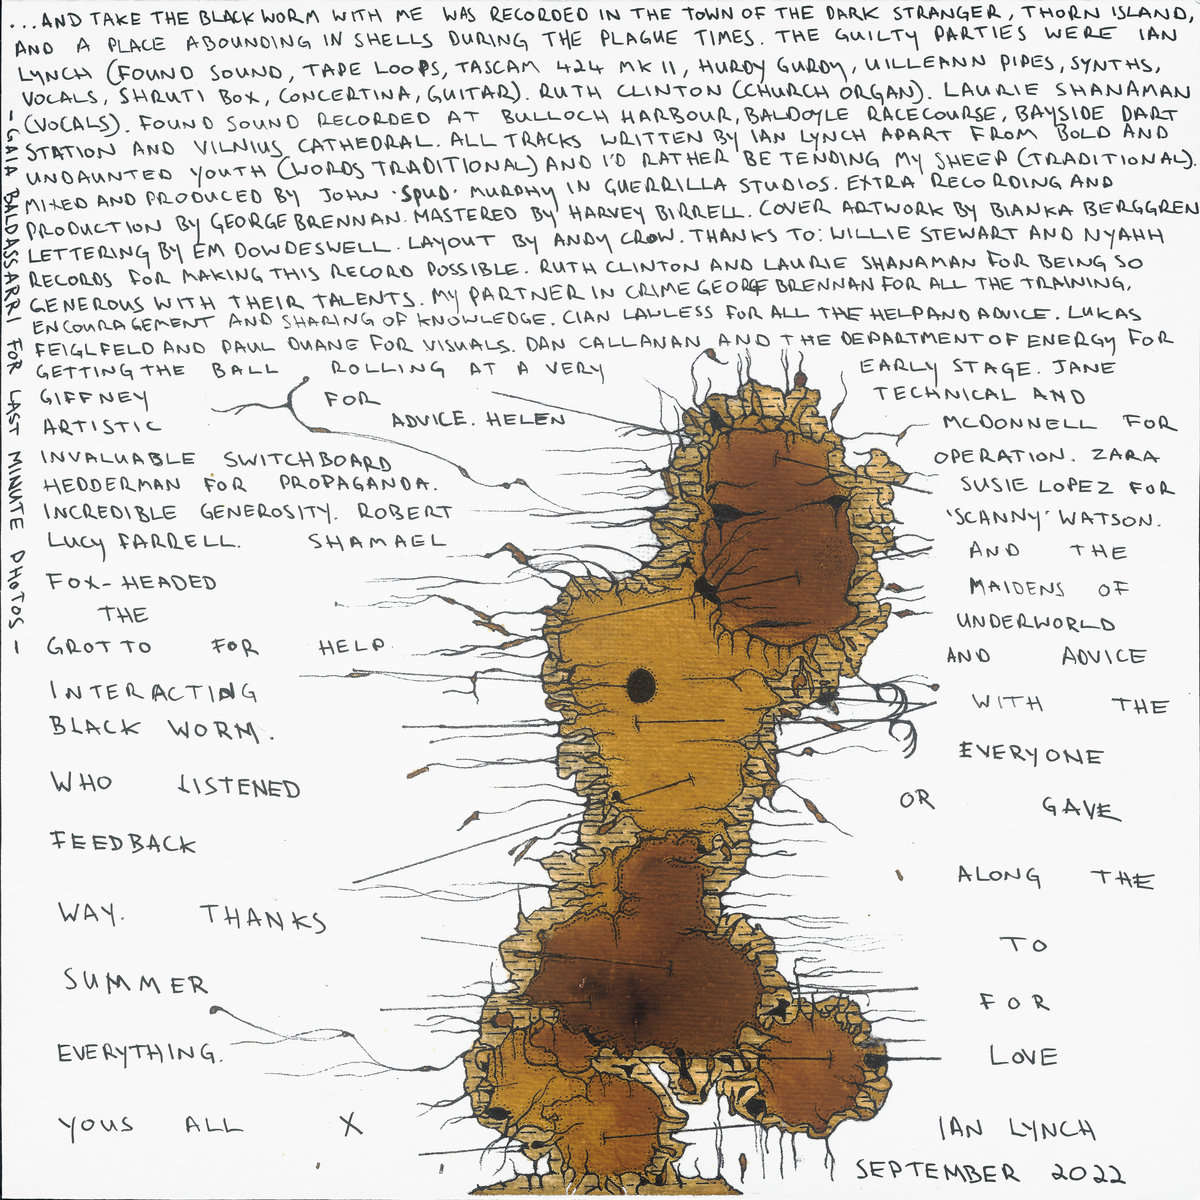 ...AND TAKE THE BLACK WORM WITH ME WAS RECORDED IN THE TOWN OF THE DARK STRANGER, THORN ISLAND,
AND A PLACE ABOUNDING IN SHELLS DURING THE PLAGUE TIMES. THE GUILTY PARTIES WERE IAN
LYNCH (FOUND SOUND, TAPE LOOPS, TASCAM 424 MK II, HURDY GURDY, UILLEANN PIPES, SYNTHS,
VOCALS, SHRUTI BOX, CONCERTINA, GUITAR). RUTH CLINTON (CHURCH ORGAN). LAURIE SHANAMAN
(VOCALS). FOUND SOUND RECORDED AT BULLOCH HARBOUR, BALDOYLE RACECOURSE, BAYSIDE DART
STATION AND VILNIUS CATHEDRAL. ALL TRACKS WRITTEN BY IAN LYNCH APART FROM BOLD AND
UNDAUNTED YOUTH (WORDS TRADITIONAL) AND I'D RATHER BE TENDING MY SHEEP (TRADITIONAL).
MIXED AND PRODUCED BY JOHN 'SPUD' MURPHY IN GUERRILLA STUDIOS. EXTRA RECORDING AND
PRODUCTION BY GEORGE BRENNAN. MASTERED BY HARVEY BIRRELL. COVER ARTWORK BY BIANKA BERGGREN
LETTERING BY EM DOWDESWELL. LAYOUT BY ANDY CROW. THANKS TO: WILLIE STEWART AND NYAHH
RECORDS FOR MAKING THIS RECORD POSSIBLE. RUTH CLINTON AND LAURIE SHANAMAN FOR BEING SO
GENEROUS WITH THEIR TALENTS. MY PARTNER IN CRIME GEORGE BRENNAN FOR ALL THE TRAINING,
ENCOURAGEMENT AND SHARING OF KNOWLEDGE. CIAN LAWLESS FOR ALL THE HELP AND ADVICE. LUKAS
FEIGLFELD AND PAUL DUANE FOR VISUALS. DAN CALLANAN AND THE DEPARTMENT OF ENERGY FOR
GETTING THE BALL ROLLING AT A VERY EARLY STAGE. JANE
GIFFNEY FOR TECHNICAL AND
ARTISTIC ADVICE. HELEN MCDONNELL FOR
INVALUABLE SWITCHBOARD OPERATION. ZARA
HEDDERMAN FOR PROPAGANDA. SUSIE LOPEZ FOR
INCREDIBLE GENEROSITY. ROBERT 'SCANNY' WATSON.
LUCY FARRELL. SHAMAEL AND THE
FOX-HEADED MAIDENS OF
THE UNDERWORLD
GROTTO FOR HELP AND ADVICE
INTERACTING WITH THE
BLACK WORM. EVERYONE
WHO LISTENED OR GAVE
FEEDBACK ALONG THE
WAY. THANKS TO
SUMMER FOR
EVERYTHING. LOVE
YOUS ALL X IAN LYNCH
SEPTEMBER 2022
- GAIA BALDASSARRI FOR LAST MINUTE PHOTOS -